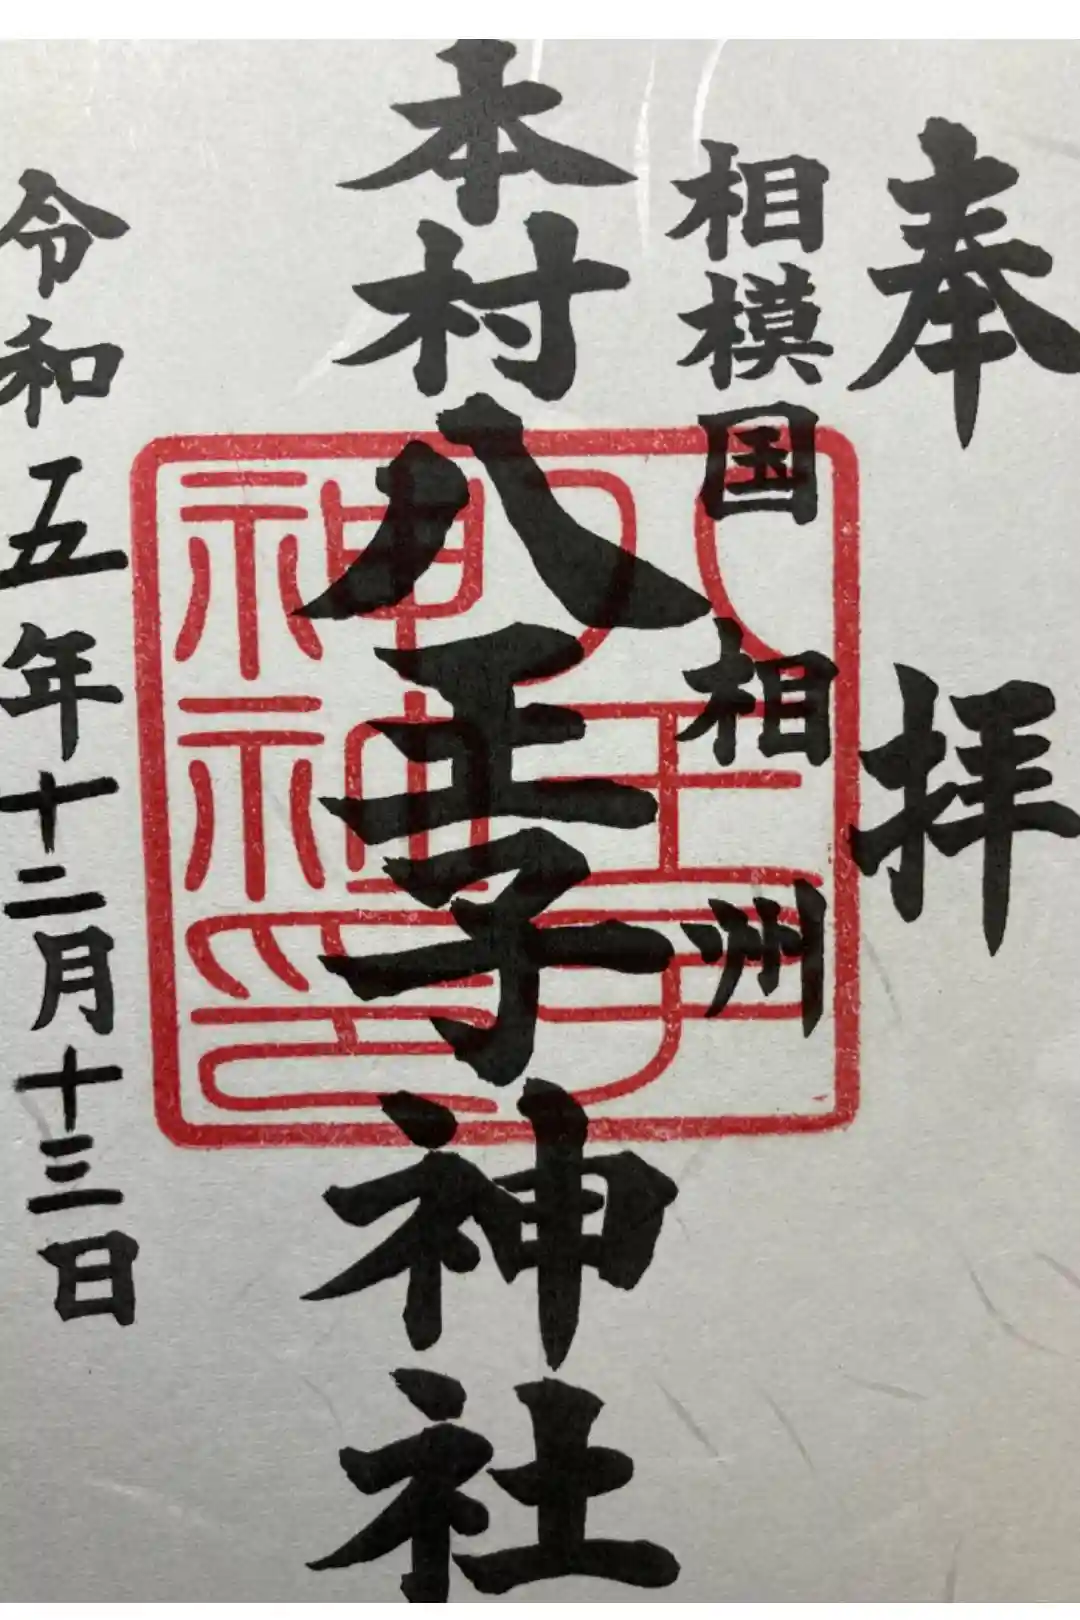 奉拝
相模国 相州
本村八王子神社
令和五年十二月十三日
八王子
神社印